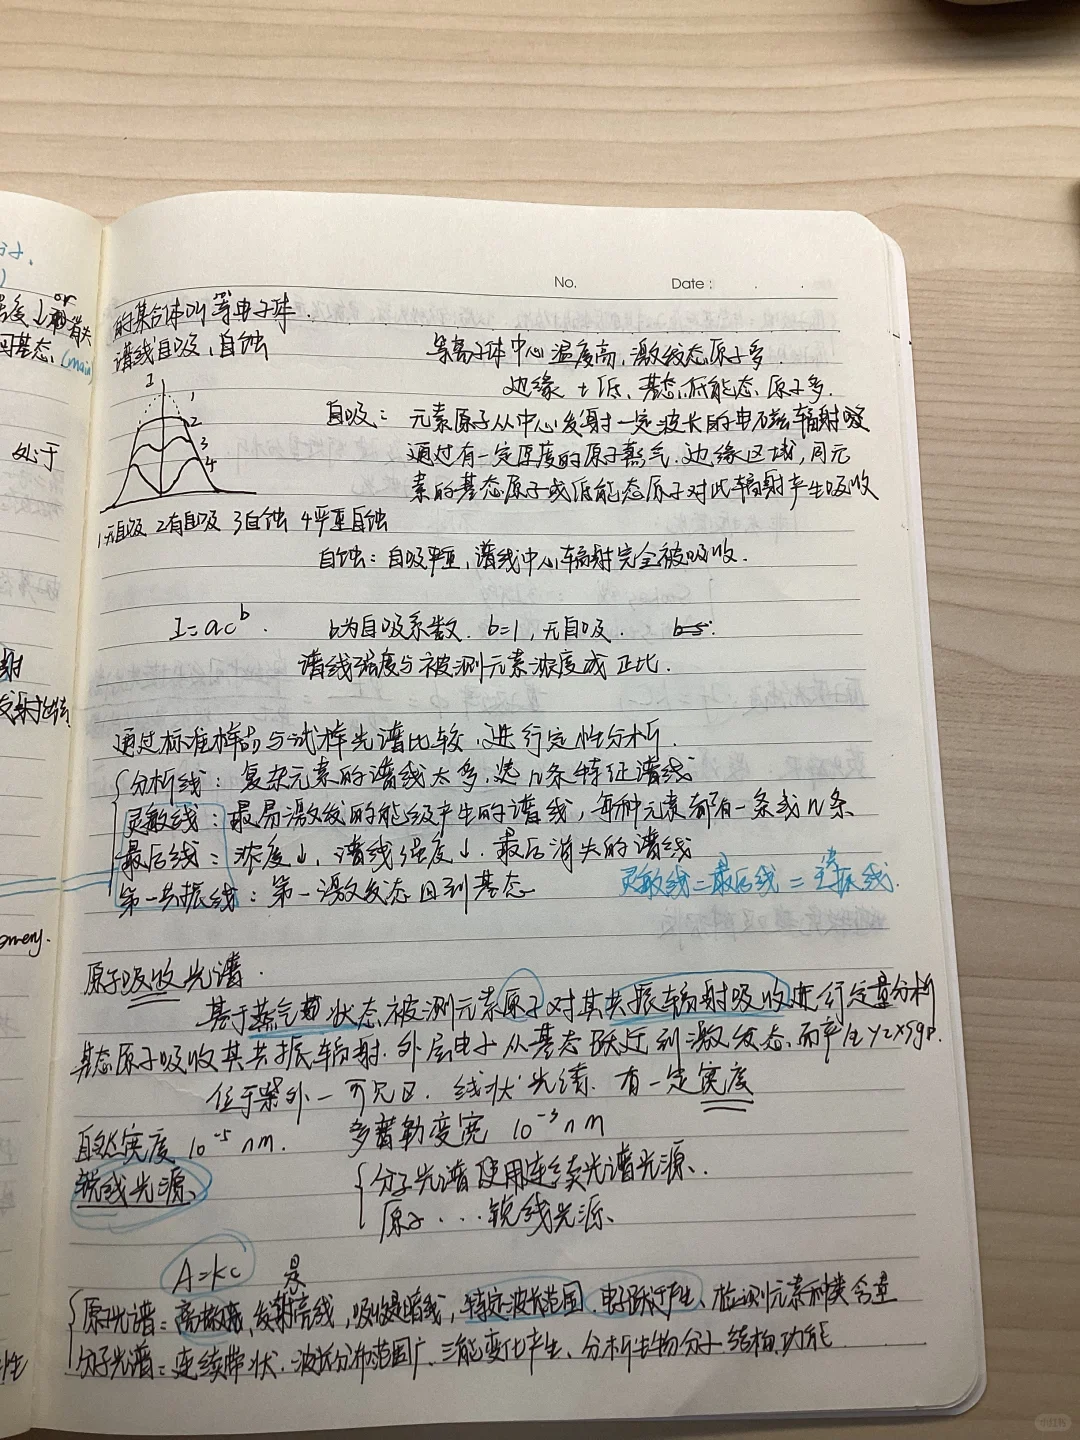 No. Date:
的集合体叫等电子体.
谱线自吸,自蚀
等离子体中心温度高,激发态原子多
边缘 + 低、基态,低能态原子多.
I
1
2
3
4
自吸:元素原子从中心发射一定波长的电磁辐射
通过有一定厚度的原子蒸气.边缘区域,同元
素的基态原子或低能态原子对此辐射产生吸收
1无自吸 2有自吸 3自蚀 4严重自蚀
自蚀:自吸严重,谱线中心辐射完全被吸收.
I=ac^b. b为自吸系数. b=1,无自吸.
谱线强度与被测元素浓度成正比.
通过标准样品与试样光谱比较,进行定性分析.
分析线:复杂元素的谱线太多,选n条特征谱线
灵敏线:最易激发的能级产生的谱线,每种元素都有一条或n条
最后线:浓度↓,谱线强度↓.最后消失的谱线
第一共振线:第一激发态回到基态
灵敏线=最后线=共振线.
原子吸收光谱.
基于蒸气状态被测元素原子对其共振辐射吸收进行定量分析
基态原子吸收其共振辐射.外层电子从基态跃迁到激发态,而产生yzxsgp.
位于紫外-可见区.线状光谱.有一定宽度
自然宽度10^-5nm. 多普勒变宽 10^-3nm
锐线光源、
分子光谱使用连续光谱光源、.
原子...锐线光源、
A=kc 是
原子光谱:离散,发射亮线,吸收是暗线,特定波长范围.电子跃迁产生、检测元素种类含量
分子光谱:连续带状.波长分布范围广、三能变化产生、分析生物分子结构,功能
处于
or
消失
基态、(main)